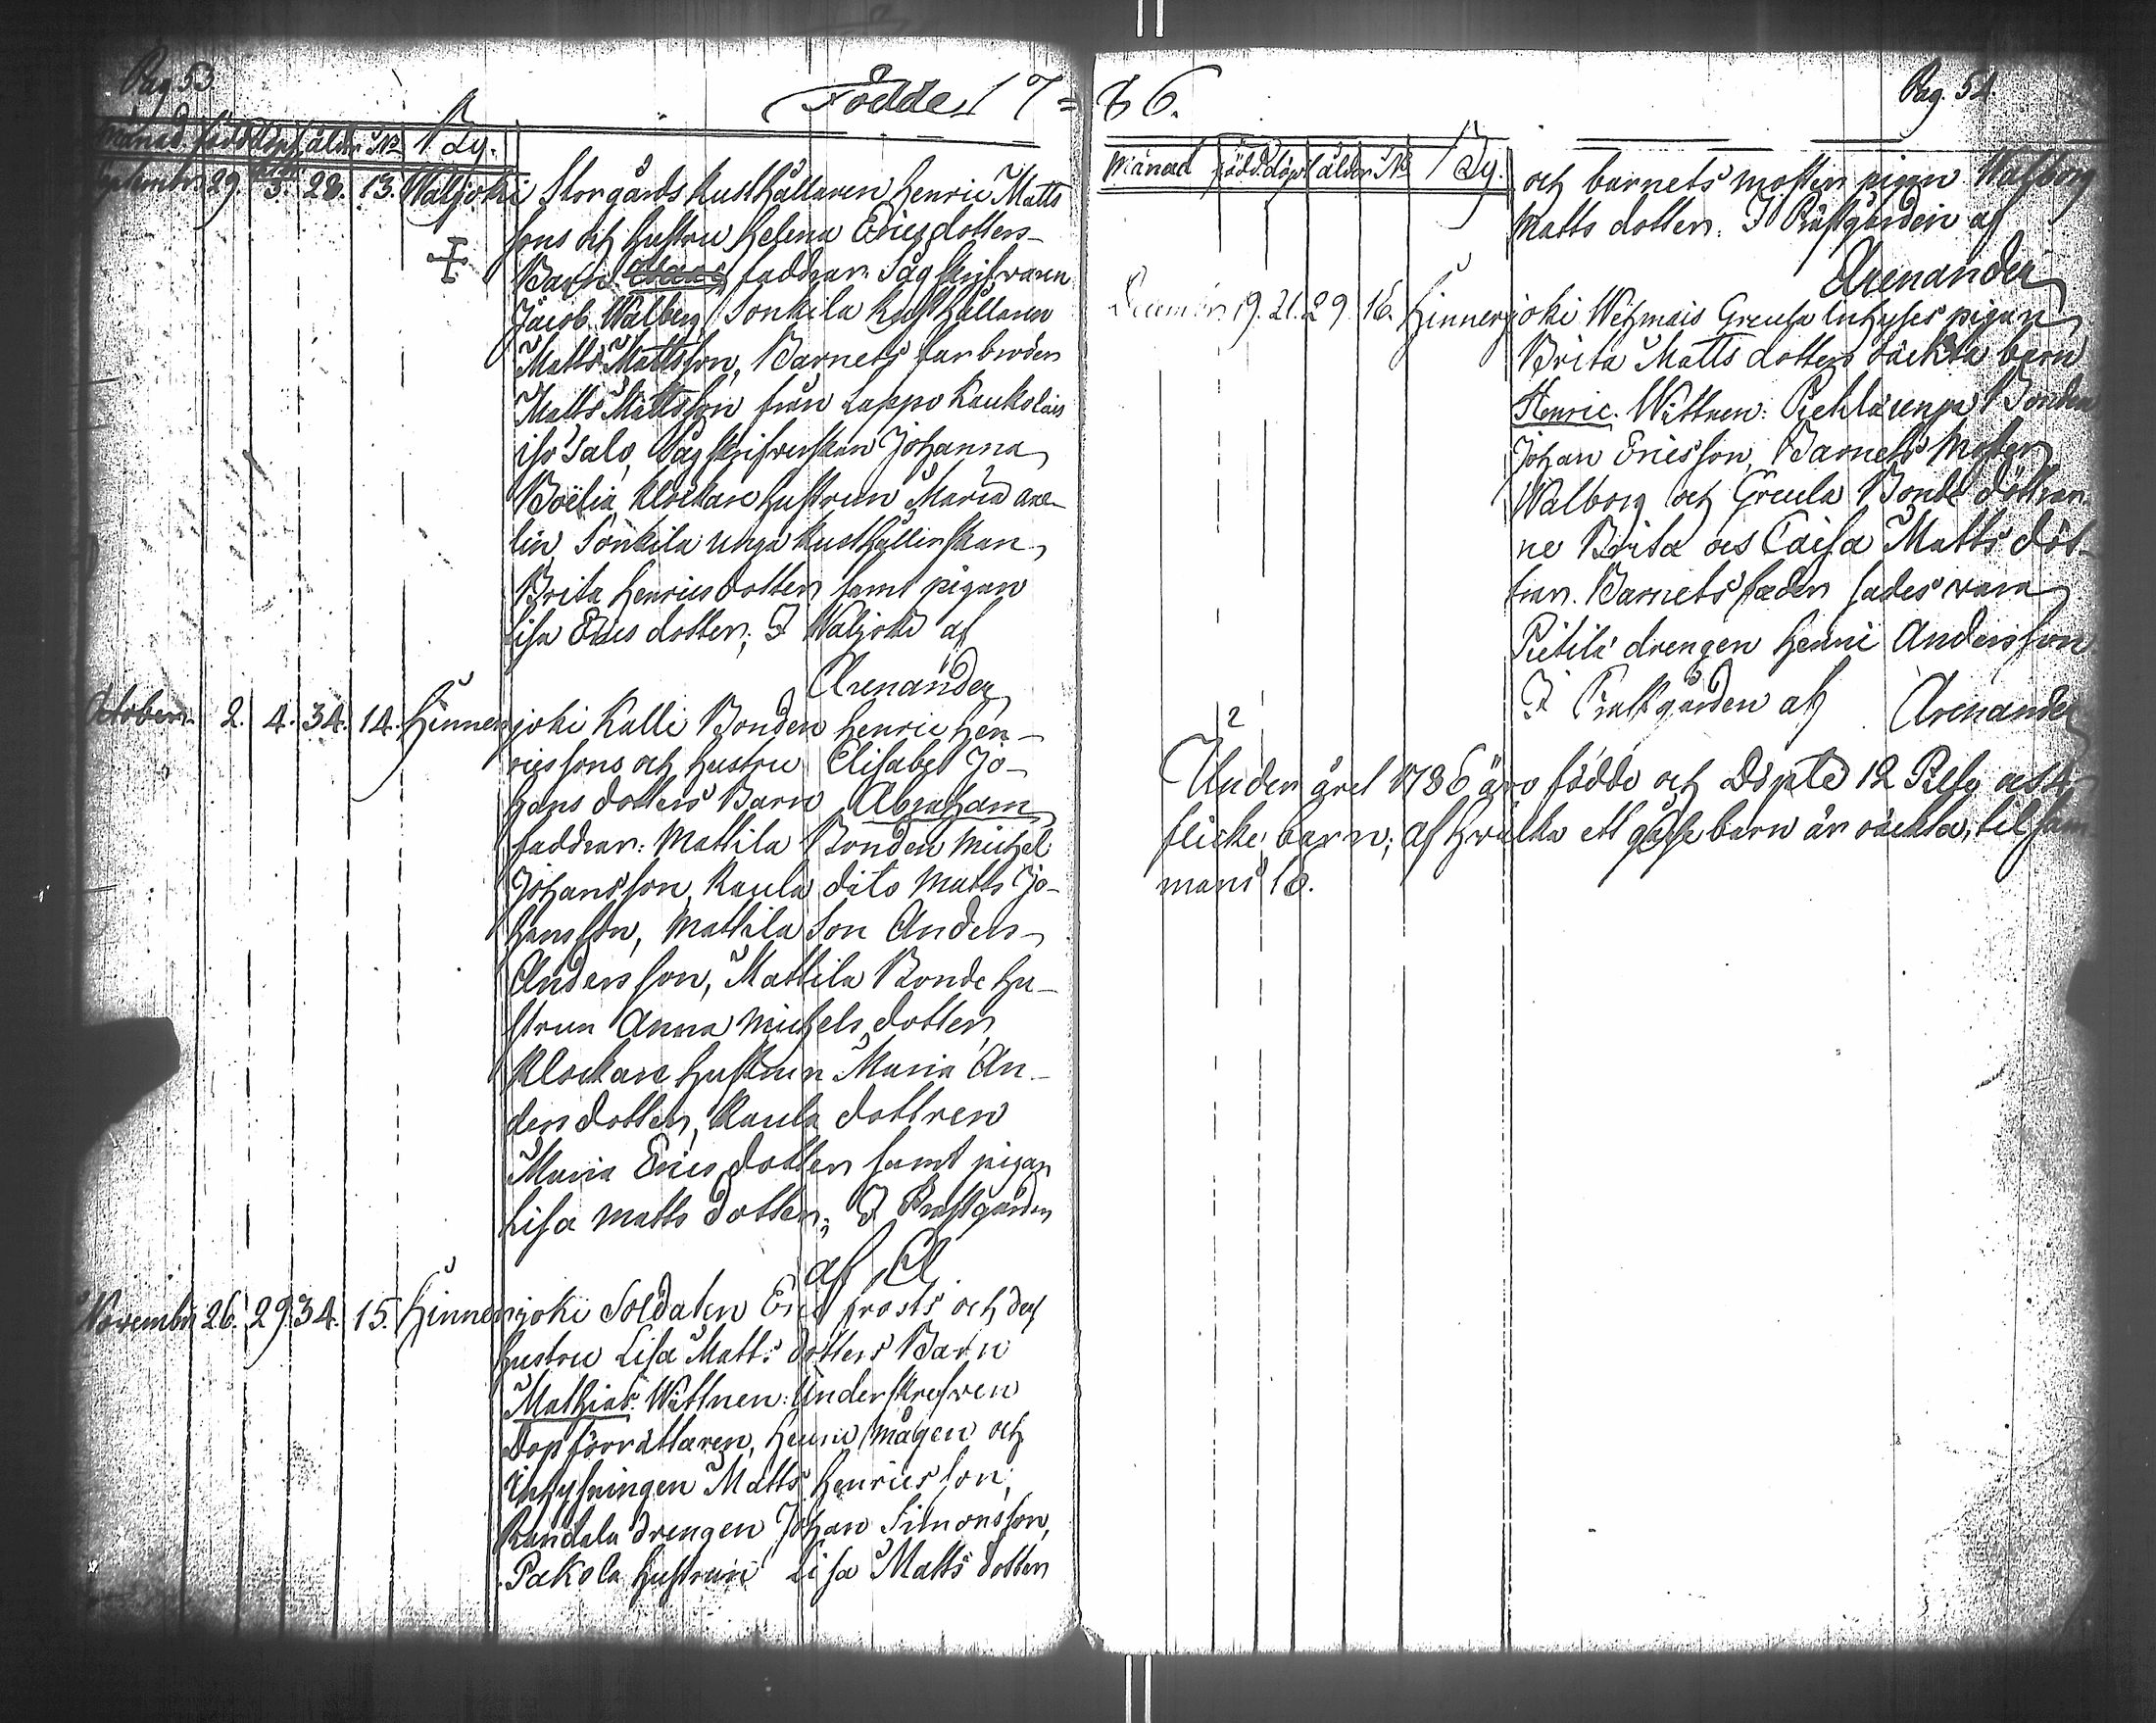 Pag 53.
Födde 17=
Månad. född döpt ålder No By.
Septembr. 29. 3. 28. 13. Waljoki Storgårds Rusthållaren Henric Matts
sons och hustru Helena Ericsdotters
Barn faddrar: Sågskrifvaren
Jacob Walberg, Sonkila Rusthållaren
Matts Mattsson, Barnets farbroder
Matts Mattsson från Lappo Kaukolais
iso Salo, Sågskrifverskan Johanna
Boëlia, Klockare hustrun Maria Are-
lin Sonkila unga Rusthållerskan,
Brita Henricsdotter samt pigan
Lisa Ericsdotter; I Waljoki af
Arenander
October. 2. 4. 34. 14. Hinnerjoki Kalli Bonden Henric Hen-
ricssons och hustru Elisabet Jo-
hansdotters Barn Abraham
faddrar: Mattila Bonden Michel
Johansson, Kaula dito Matts Jo-
hansson, Mattila Son Anders
Andersson, Mattila Bonde hu-
strun Anna Michelsdotter,
Klockare hustrun Maria An-
dersdotter, Kaula dottren
Maria Ericsdotter samt pigan
Lisa Mattsdotter; I Prästgården
af A
November 26. 29. 34. 15. Hinnerjoki Soldaten Eric Frosts och dess
hustru Lisa Matts dotters Barn
Mathias. Wittnen: Underskrefven
Dopförrättaren, Heuno mågen och
Inhysningen Matts Henricsson,
Kandala drengen Johan Simonsson,
Pakola hustrun Lisa Matts dotter
86.
Pag. 54
Månad född döpt ålder No By.
och barnets moster pigan Walborg
Matts dotter. I Prästgården af
Arenander
December 19. 21. 29. 16. Hinnerjoki Wehmais Greula Inhyses pigan
Brita Matts dotters oäckta barn
Henric. Wittnen: unga Bonden
Johan Ericsson, Barnets Moster
Walborg och Greula Bonde döttrar-
ne Brita och Caisa Matts döt-
trar. Barnets fader sades vara
Pietilä drengen Henric Andersson
I Prästgården af Arenander
2
Under året 1786 äro födde och Döpte 12 Piltar och 4
flicke barn; af hvilka ett gosse barn är oäckta, tilsam
mans 16.